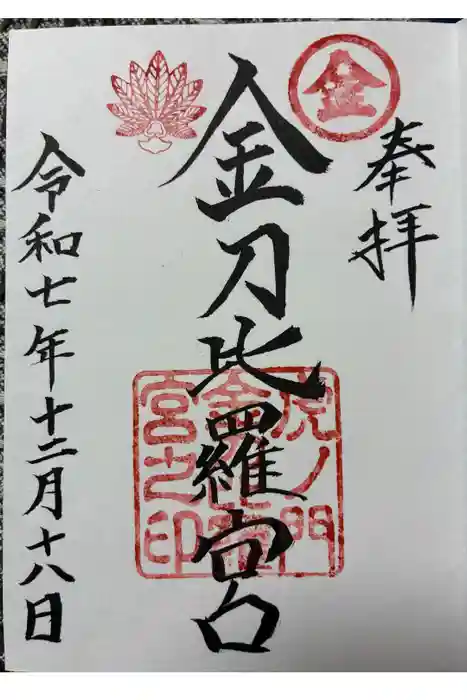 奉拝
金
金刀比羅宮
虎ノ門
金
宮之印
令和七年十二月十八日